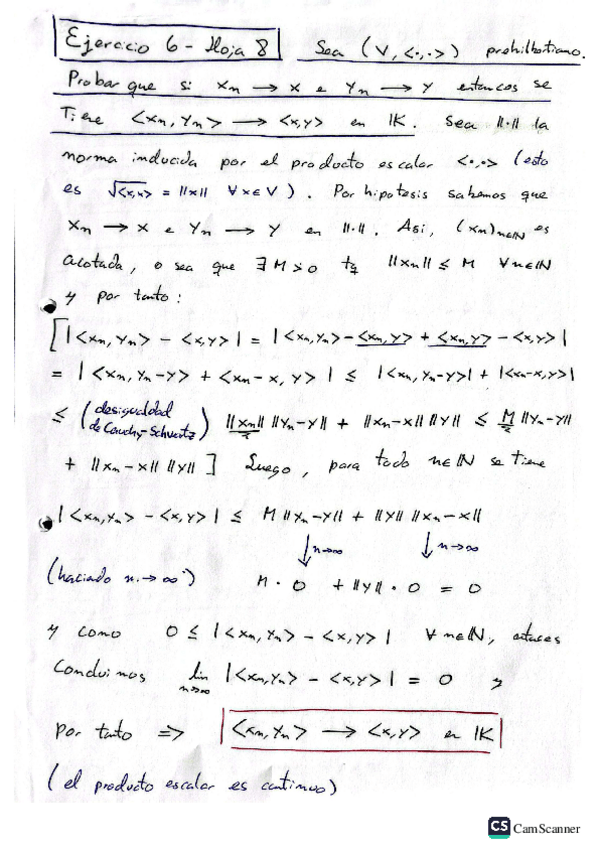 Ejercicio 6 - Hoja 8 Sea (V, <·,·>) prehilbertiano.
Probar que si xn → x e yn → y entonces se
Tiene <xn, yn> → <x,y> en IK. Sea ||·|| la
norma inducida por el producto escalar <·,·> (esto
es √<x,x> = ||x|| ∀x∈V). Por hipotesis sabemos que
xn → x e yn → y en ||·||. Asi, (xn)n∈IN es
acotada, o sea que ∃M>0 tq ||xn|| ≤ M ∀n∈IN
y por tanto:
[|<xn, yn> - <x,y>| = |<xn,yn> - <xn,y> + <xn,y> - <x,y>|
= |<xn, yn-y> + <xn-x, y>| ≤ |<xn,yn-y>| + |<xn-x,y>|
≤ (desigualdad de Cauchy-Schwartz) ||xn|| ||yn-y|| + ||xn-x|| ||y|| ≤ M ||yn-y||
+ ||xn-x|| ||y||] Luego, para todo n∈IN se tiene
|<xn,yn> - <x,y>| ≤ M ||yn-y|| + ||y|| ||xn-x||
↓n→∞ ↓n→∞
(haciado n→∞) M · 0 + ||y|| · 0 = 0
y como 0 ≤ |<xn,yn> - <x,y>| ∀n∈IN, entonces
Concluimos lim n→∞ |<xn,yn> - <x,y>| = 0 y
por tanto => <xn,yn> → <x,y> en IK
(el producto escalar es continuo)
CS CamScanner